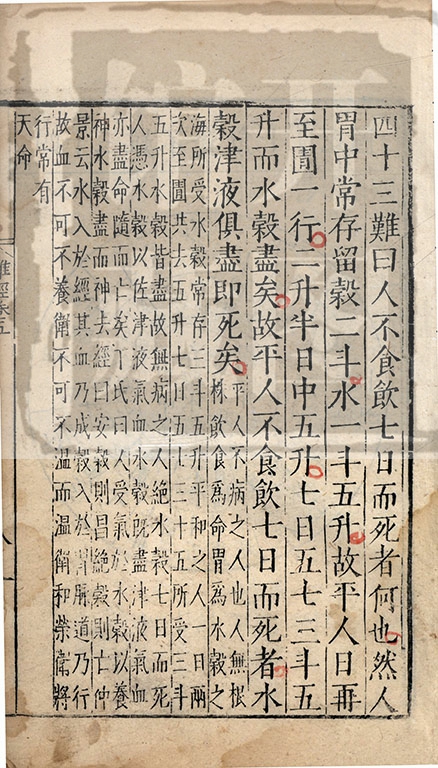 四十三難曰人不食飲七日而死者何也然人
胃中常存留穀二斗水一斗五升故平人日再
至圊一行二升半日中五升七日五七三斗五
升而水穀盡矣故平人不食飲七日而死者水
穀津液俱盡即死矣
平人不病之人也人無根
株飲食爲命胃爲水穀之
海所受水穀常存三斗五升平和之人一日兩
次至圊共去五升七日五七三十五所受三斗
五升水穀皆盡故無病之人絶水穀七日而死
人憑水穀以佐津液氣血水穀既盡津液氣血
亦盡命隨而亡矣丁氏曰人受氣於水穀以養
神水穀盡而神去經曰安穀則昌絶穀則亡仲
景云水入於經其血乃成穀入於胃脈道乃行
故血不可不養衛不可不温而温衛和榮衛將
行常有
天命